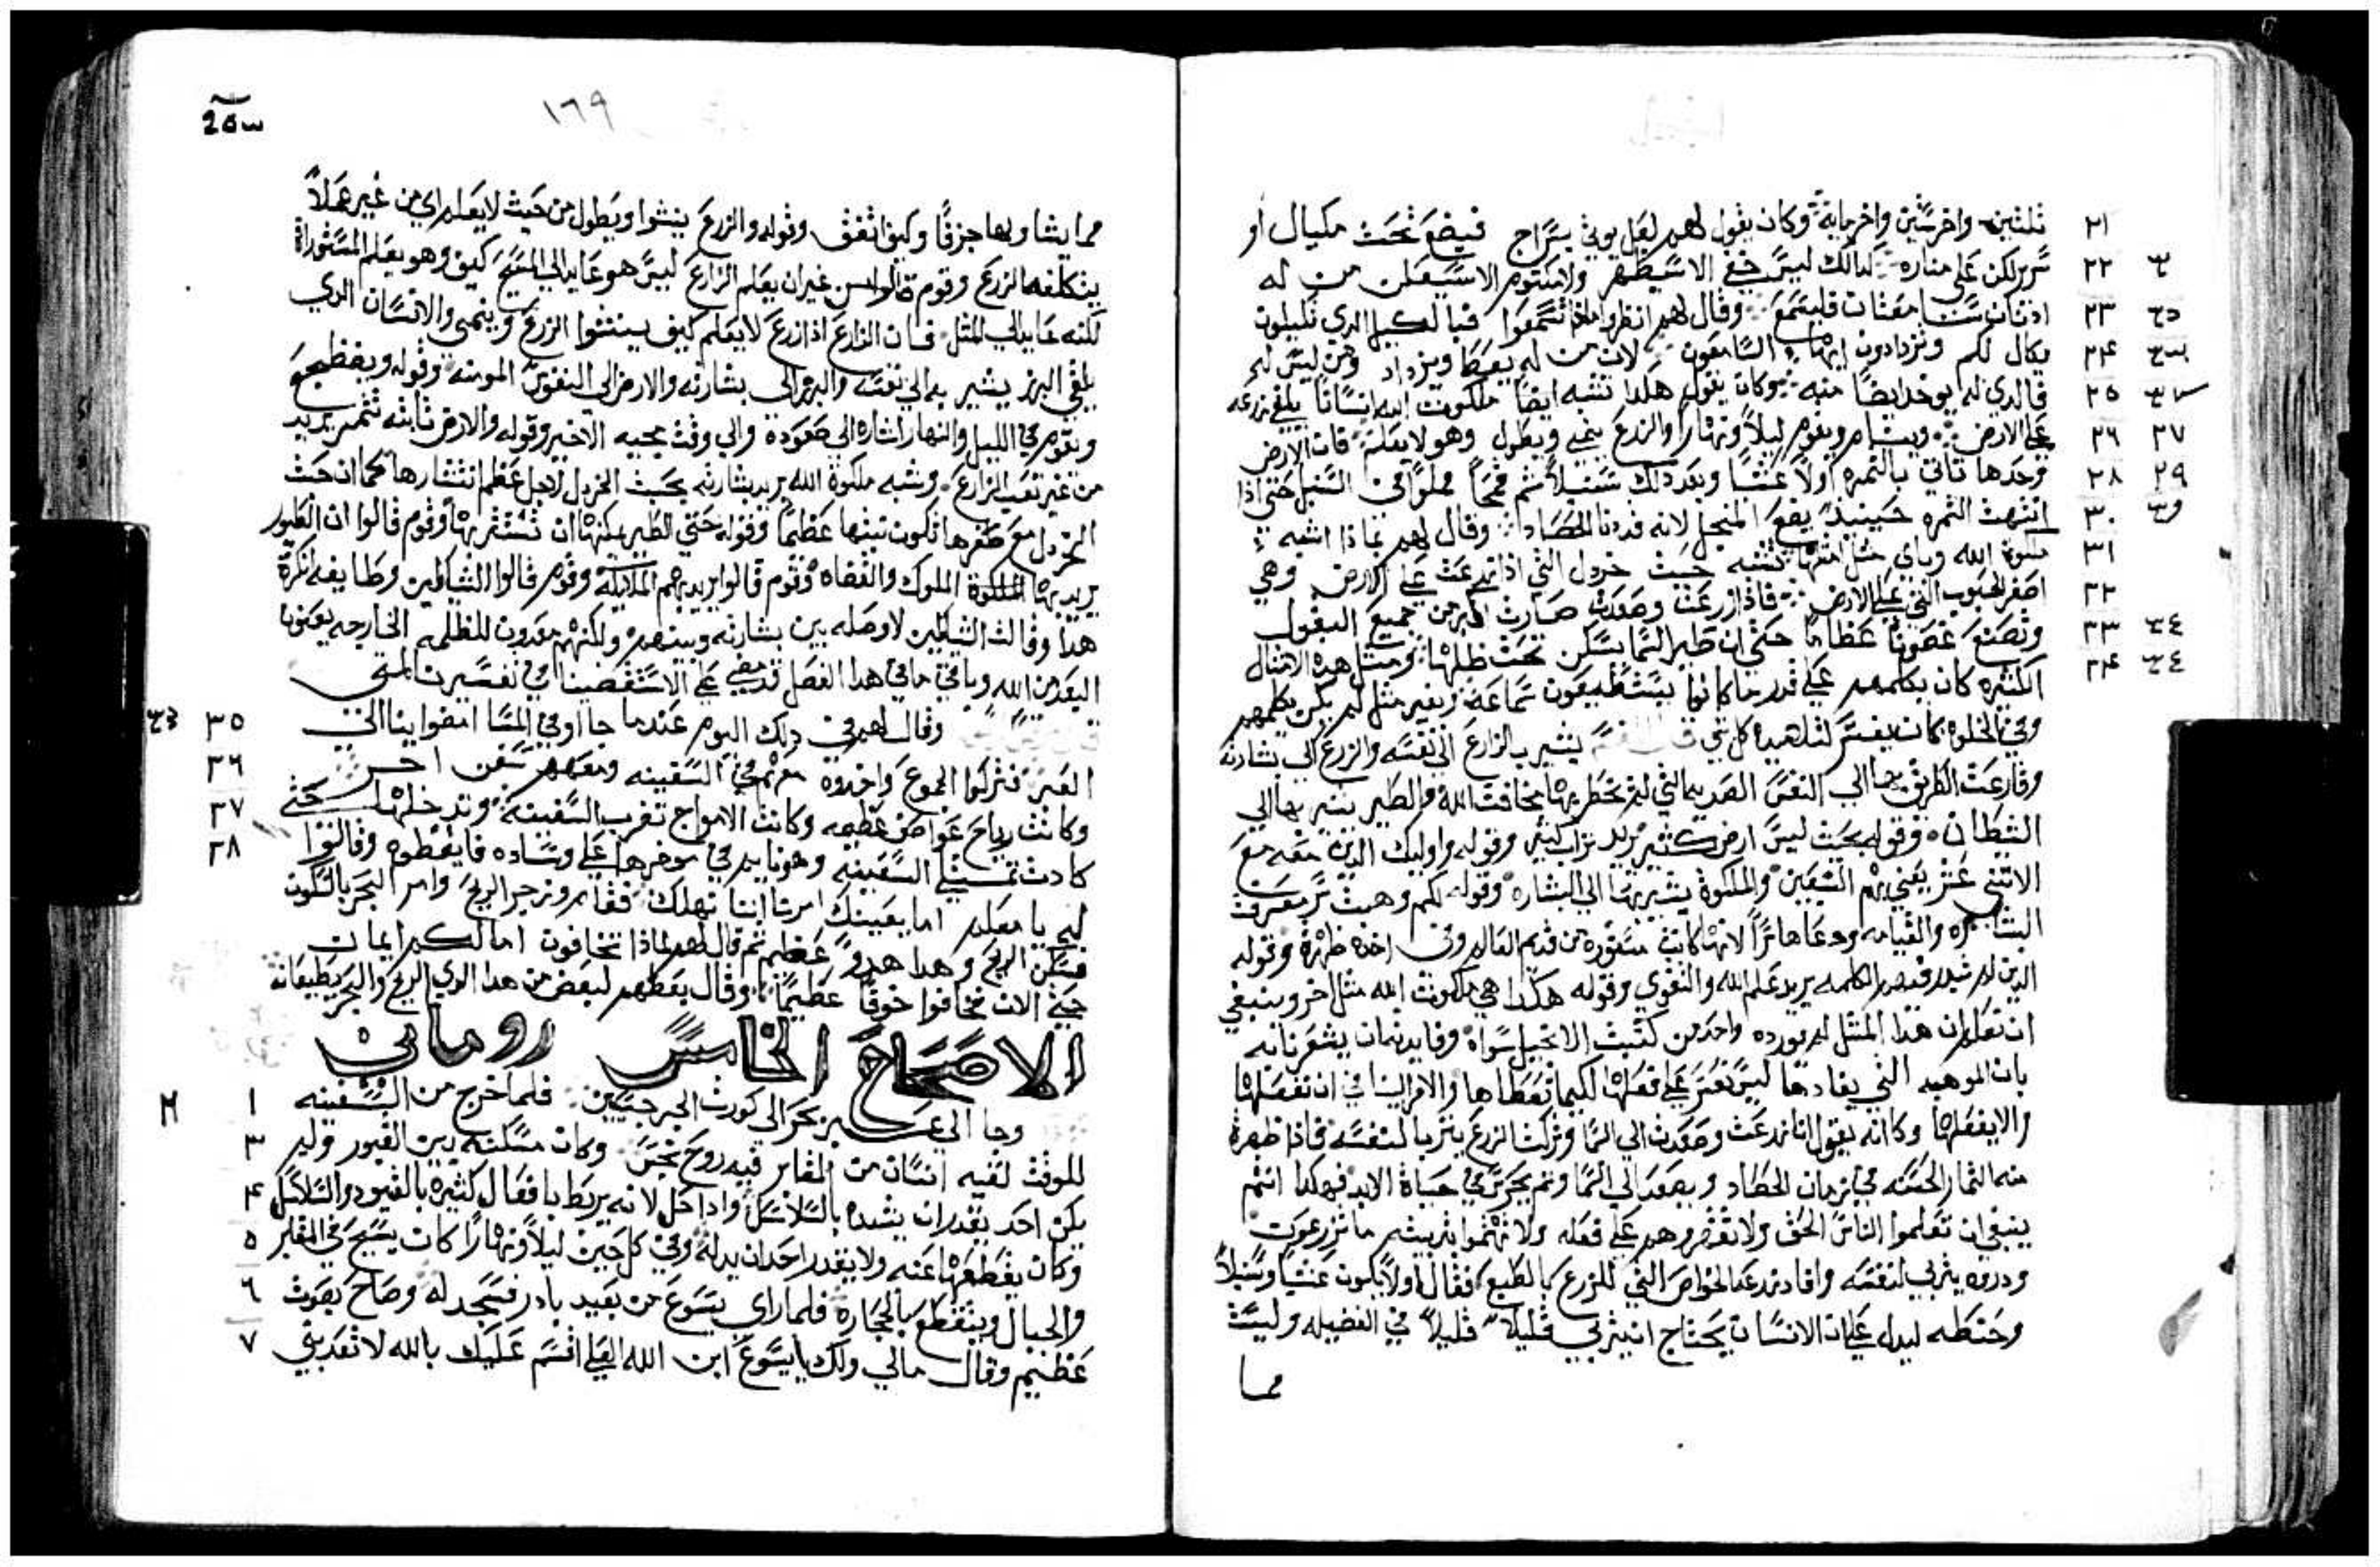 ثلثين واخر ستين واخر ماية وكان يقول لهم لعل يوتي بسراج فيضع تحت مكيال او
سرير لكن علي مناره كدلك ليس خفي الا سيظهر ولا مكتوم الا سيعلن من له
ادنان سامعتان فليسمع وقال لهم انظروا مادا تسمعوا فبالكيل الدي تكيلون
يكال لكم وتزدادون ايها السامعون لان من له يعطا ويزداد ومن ليس له
فالدي له يوخد ايضا منه وكان يقول هكدا تشبه ايضا ملكوت الله انسانا يلقي زرعه
علي الارض وينام ويقوم ليلا ونهارا والزرع ينمي ويطول وهو لا يعلم فان الارض
وحدها تاتي بالثمره اولا عشبا وبعد دلك سنبلا ثم قمحا مملوا في السنبل حتي ادا
انتهت الثمره حينيد يضع المنجل لانه قد دنا الحصاد وقال لهم بماذا اشبه
ملكوة الله وباي مثل امثلها تشبه حبت خردل التي اذا زرعت علي الارض وهي
اصغر الحبوب التي علي الارض فاذا زرعت وصعدت صارت اكبر من جميع البقول
وتصنع غصونا عظاما حتي ان طير السما يسكن تحت ظلها وبمثل هده الامثال
الكثيره كان يكلمهم علي قدر ما كانوا يستطيعون سماعة وبغير مثل لم يكن يكلمهم
وفي الخلوه كان يفسر لتلاميده كل شي يشير بالزارع الي نفسه والزرع الي بشارته
وقارعت الطريق بها الي النفس الصديه التي لم تخطر بها مخافت الله والطير يشير بها الي
الشيطان وقوله بحيث ليس ارض كثير يريد تراب كثير وقوله واوليك الدين معه مع
الاثني عشر يعني بهم السبعين والملكوة يشير بها الي البشاره وقوله لكم وهبت سر معرفت
البشاره والقيامه ودعاها سرا لانها كانت مستوره من قديم العالم وفي اخره ظهرة وقوله
الدين لم الكلمه يريد علم الله والتقوي وقوله هكدا هي ملكوت الله مثل اخر وينبغي
ان تعلم ان هذا المثل لم يورده واحد من كتبت الانجيل سواه وفايدته ان يشعرنا به
بان الموهبه التي يفادها ليس نقسر علي فعلها لكيما نعطاها والامر الينا في ان نفعلها
والا نفعلها وكانه يقول انا زرعت وصعدت الي السما وتركت الزرع يتربا لنفسه فاذا ظهرة
منه الثمار الحسنه في زمان الحصاد ويصعد الي السما وثم يحرس في حياة الابد فهكدا انتم
ينبغي ان تعلموا الناس الحق ولا تقهروهم علي فعله ولا تهتموا بتربيته ما تزرعون
ودروه يتربي لنفسه وافادنه عدد الخواص التي للزرع بالطبع فقال اولا يكون عشبا وسنبلا
وحنطه ليدل علي ان الانسان يحتاج ان يتربي قليلا قليلا في الفضيله وليست
مما
٢١
٢٢
٢٣
٢۴
٢٥
٢٦
٢٨
٣٠
٣١
٣٢
٣٣
٣۴
١٦٩
مما يشا وبها جزفا وكيف اتفق وقوله والزرع ينشوا ويطول من حيث لا يعلم اي من غير عملا
يتكلفه الزرع وقوم قالوا من غير ان يعلم الزارع ليس هو عايد الي المسيح كيف وهو يعلم المستوراة
لكنه عايد الي المثل فان الزارع اذا زرع لا يعلم كيف ينشوا الزرع وينمي والانسان الدي
يلقي البزر يشير به الي نفسه والبزر الي بشارته والارض الي النفوس المومنه وقوله ويضطجع
ويقوم في الليل والنهار اشاره الي صعوده والي وقت مجيه الاخير وقوله والارض ثابته تثمر يريد
من غير تعب الزارع وشبه ملكوة الله يريد بشارته بحبت الخردل لاجل عظم انتشارها كما ان حبت
الخردل مع صغرها تكون نبتها عظيما وقوله حتي الطير يمكنها ان تستقر بها وقوم قالوا ان الطيور
يريد بها الملكوة الملوك والقضاه وقوم قالوا يريد بهم الملايكة وقوم قالوا الشياطين وطايفه انكرة
هدا وقالت الشياطين لا وصله بين بشارته وبينهم ولكنهم معدون للظلمه الخارجه يعنونا
البعد من الله وباقي ما في هدا الفصل قد مضي علي الاستقصينا في تفسيرنا لمتي
وقال لهم في دلك اليوم عندما جا اوقي المسا امضوا بنا الي
العبر فتركوا الجموع واخدوه معهم في السفينه ومعهم سفن اخر
وكانت رياح عواصف عظيمه وكانت الامواج تضرب السفينة وتدخلها حتي
كادت تمتلي السفينه وهو نايم في موخرها علي وساده فايقظوه وقالوا
له يا معلم اما يعنيك امرنا اننا نهلك فقام وزجر الريح وامر البحر بالسكون
فسكن الريح وهدا هدو عظيم ثم قال لهم لماذا تخافون اما لكم ايمان
حتي الان فخافوا خوفا عظيما وقال بعضهم لبعض من هدا الدي الريح والبحر يطيعانه
الاصحاح الخامس روماني
وجا الي عبر بحر الي كورت الجرجسيين فلما خرج من السفينه
للوقت لقيه انسان من المقابر فيه روح نجس وكان مسكنه بين القبور ولم
يكن احد يقدر ان يشده بالسلاسل واذا حل لانه يربط بافعال كثيره بالقيود والسلاسل
وكان يقطعها عنه ولا يقدر احد ان يدلله وفي كل حين ليلا ونهارا كان يسيح في المقابر
والجبال ويتقطع بالحجارة فلما راي يسوع من بعيد بادر فسجد له وصاح بصوت
عظيم وقال مالي ولك يا يسوع ابن الله العلي اقسم عليك بالله لا تعدبني
٣٥
٣٦
٣٧
٣٨
١
٢
٣
۴
٥
٦
٧